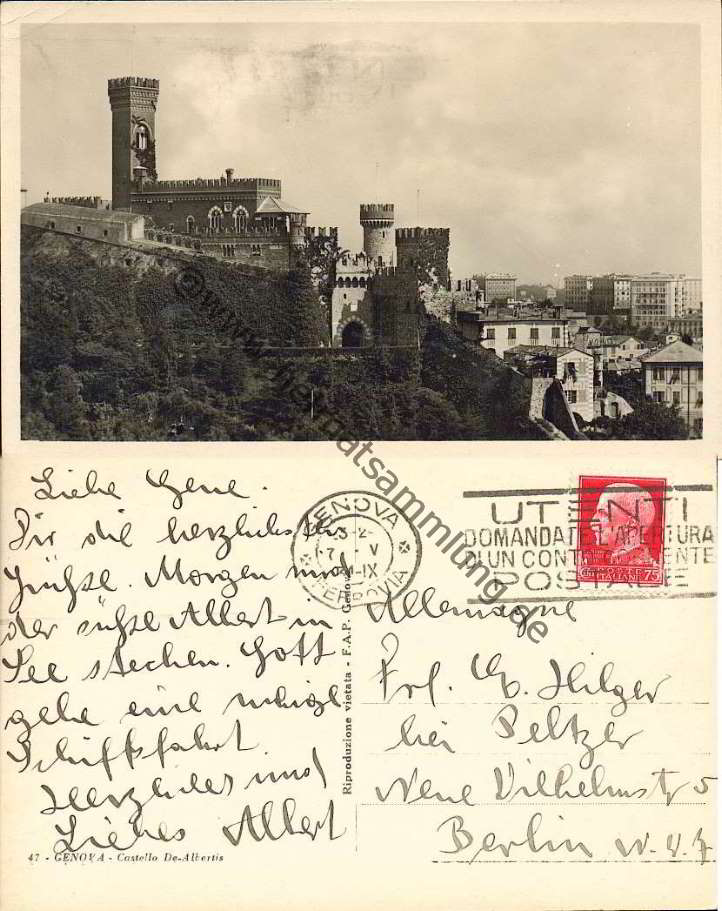 © www.heimatsammlung.de
Liebe Gene.
Dir die herzlichsten
Grüsse. Morgen wird
der süsse Albert in
See stechen. Gott
gebe eine ruhige
Schiffsfahrt.
Herzliches und
Liebes Albert
47 - GENOVA - Castello De-Albertis
Riproduzione vietata - F.A.P. Genova
GENOVA
FERROVIA
UTENTI
DOMANDATE L'APERTURA
DI UN CONTO CORRENTE
POSTALE
POSTE
ITALIANE
75
Allemagne
Prof. E. Hilger
bei Peltzer
Neue Wilhelmstr 5
Berlin N.W. 7